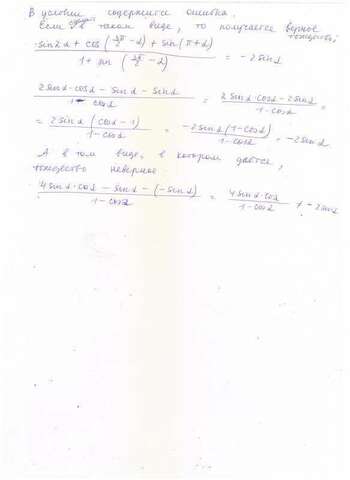 В условии содержится ошибка.
Если в таком виде, то получается верное
тождество:
sin2α + cos(3π/2 - α) + sin(π+α) / 1 + sin(3π/2 - α) = -2sinα
2sinα·cosα - sinα - sinα / 1 - cosα = 2sinα·cosα - 2sinα / 1 - cosα =
= 2sinα(cosα - 1) / 1 - cosα = -2sinα(1 - cosα) / 1 - cosα = -2sinα
А в том виде, в котором даётся,
тождество неверное
4sinα·cosα - sinα - (-sinα) / 1 - cosα = 4sinα·cosα / 1 - cosα ≠ -2sinα